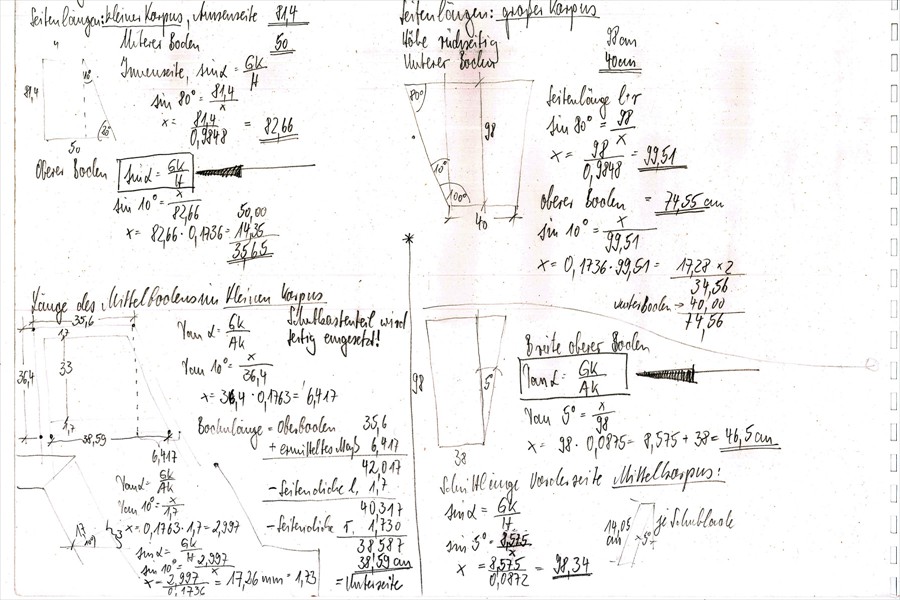 Seitenlängen: kleiner Korpus, Aussenseite 81,4
" Unterer Boden 50
Innenseite, sin α = GK/H
sin 80° = 81,4/x
x = 81,4/0,9848 = 82,66
81,4
50
Oberer Boden sin α = GK/H
sin 10° = x/82,66
50,00
x = 82,66 · 0,1736 = 14,35
35,65
Seitenlängen: großer Korpus
Höhe rückseitig 98 cm
Unterer Boden 40 cm
80°
98
10°
100°
40
Seitenlänge l + r
sin 80° = 98/x
x = 98/0,9848 = 99,51
oberer Boden = 74,55 cm
sin 10° = x/99,51
x = 0,1736 · 99,51 = 17,28 x 2
34,56
unterboden → 40,00
74,56
Länge des Mittelbodens im kleinen Korpus
35,6
1,7
33
36,4
1,7
38,59
6,417
Tan α = GK/AK
Schubkastenteil wird
fertig eingesetzt!
Tan 10° = x/36,4
x = 36,4 · 0,1763 = 6,417
Bodenlänge = Oberboden 35,6
+ ermitteltes Maß 6,417
42,017
- Seitendicke l. 1,7
40,317
- Seitendicke r. 1,730
38,587
38,59 cm
= Unterseite
Tan α = GK/AK
Tan 10° = x/1,7
x = 0,1763 · 1,7 = 2,997
sin α = GK/H
sin 10° = 2,997/x
x = 2,997/0,1736 = 17,26 mm = 1,73
98
5°
38
Breite oberer Boden
Tan α = GK/AK
Tan 5° = x/98
x = 98 · 0,0875 = 8,575 + 38 = 46,5 cm
Schnittlänge Vorderseite Mittelkorpus:
sin α = GK/H
sin 5° = 8,575/x
x = 8,575/0,0872 = 98,34
14,05
cm
5°
je Schublade